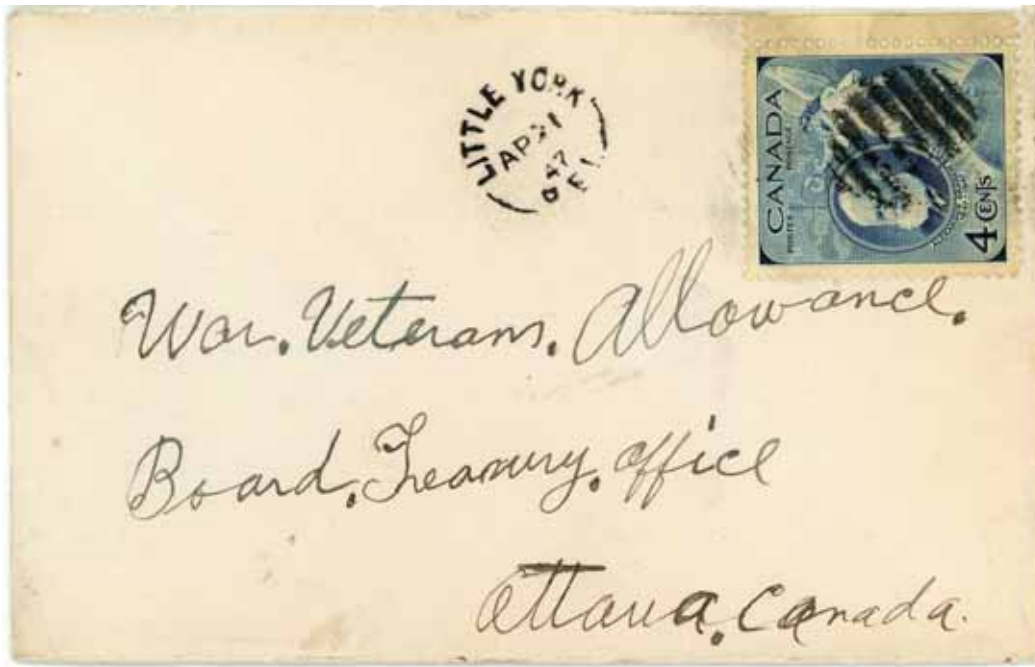 LITTLE YORK
AP 21
47
P.E.I.
CANADA
POSTES POSTAGE
4 CENTS
War. Veterans. Allowance.
Board. Treasury. office
Ottawa. Canada.